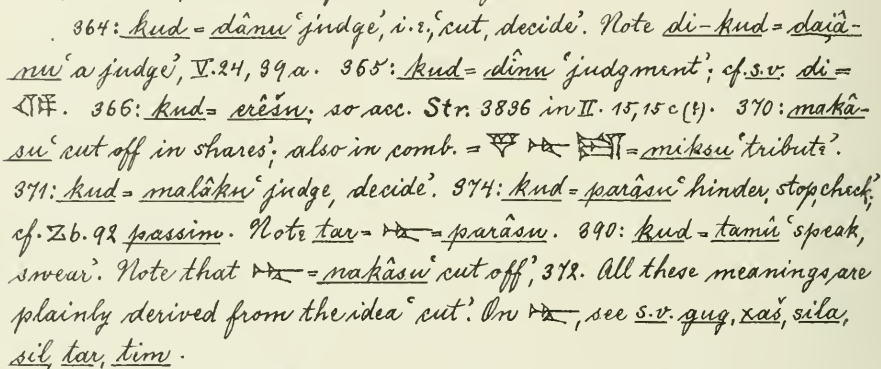 364: kud = dânu 'judge', i.e., 'cut, decide'. Note di-kud = daiâ-
nu 'a judge', V. 24, 39 a. 365: kud = dînu 'judgment'; cf. s.v. di =
𒁲. 366: kud = erêšu; so acc. Str. 3836 in II. 15, 15 c (?). 370: makâ-
su 'cut off in shares'; also in comb. = 𒃻 𒋻 = miksu 'tribute'.
371: kud = malâku 'judge, decide'. 374: kud = parâsu 'hinder, stop, check,'
cf. Zb. 92 passim. Note tar = 𒋻 = parâsu. 390: kud = tamû 'speak,
swear'. Note that 𒋻 = nakâsu 'cut off', 372. All these meanings are
plainly derived from the idea 'cut'. On 𒋻, see s.v. gug, xaš, sila,
sil, tar, tim.